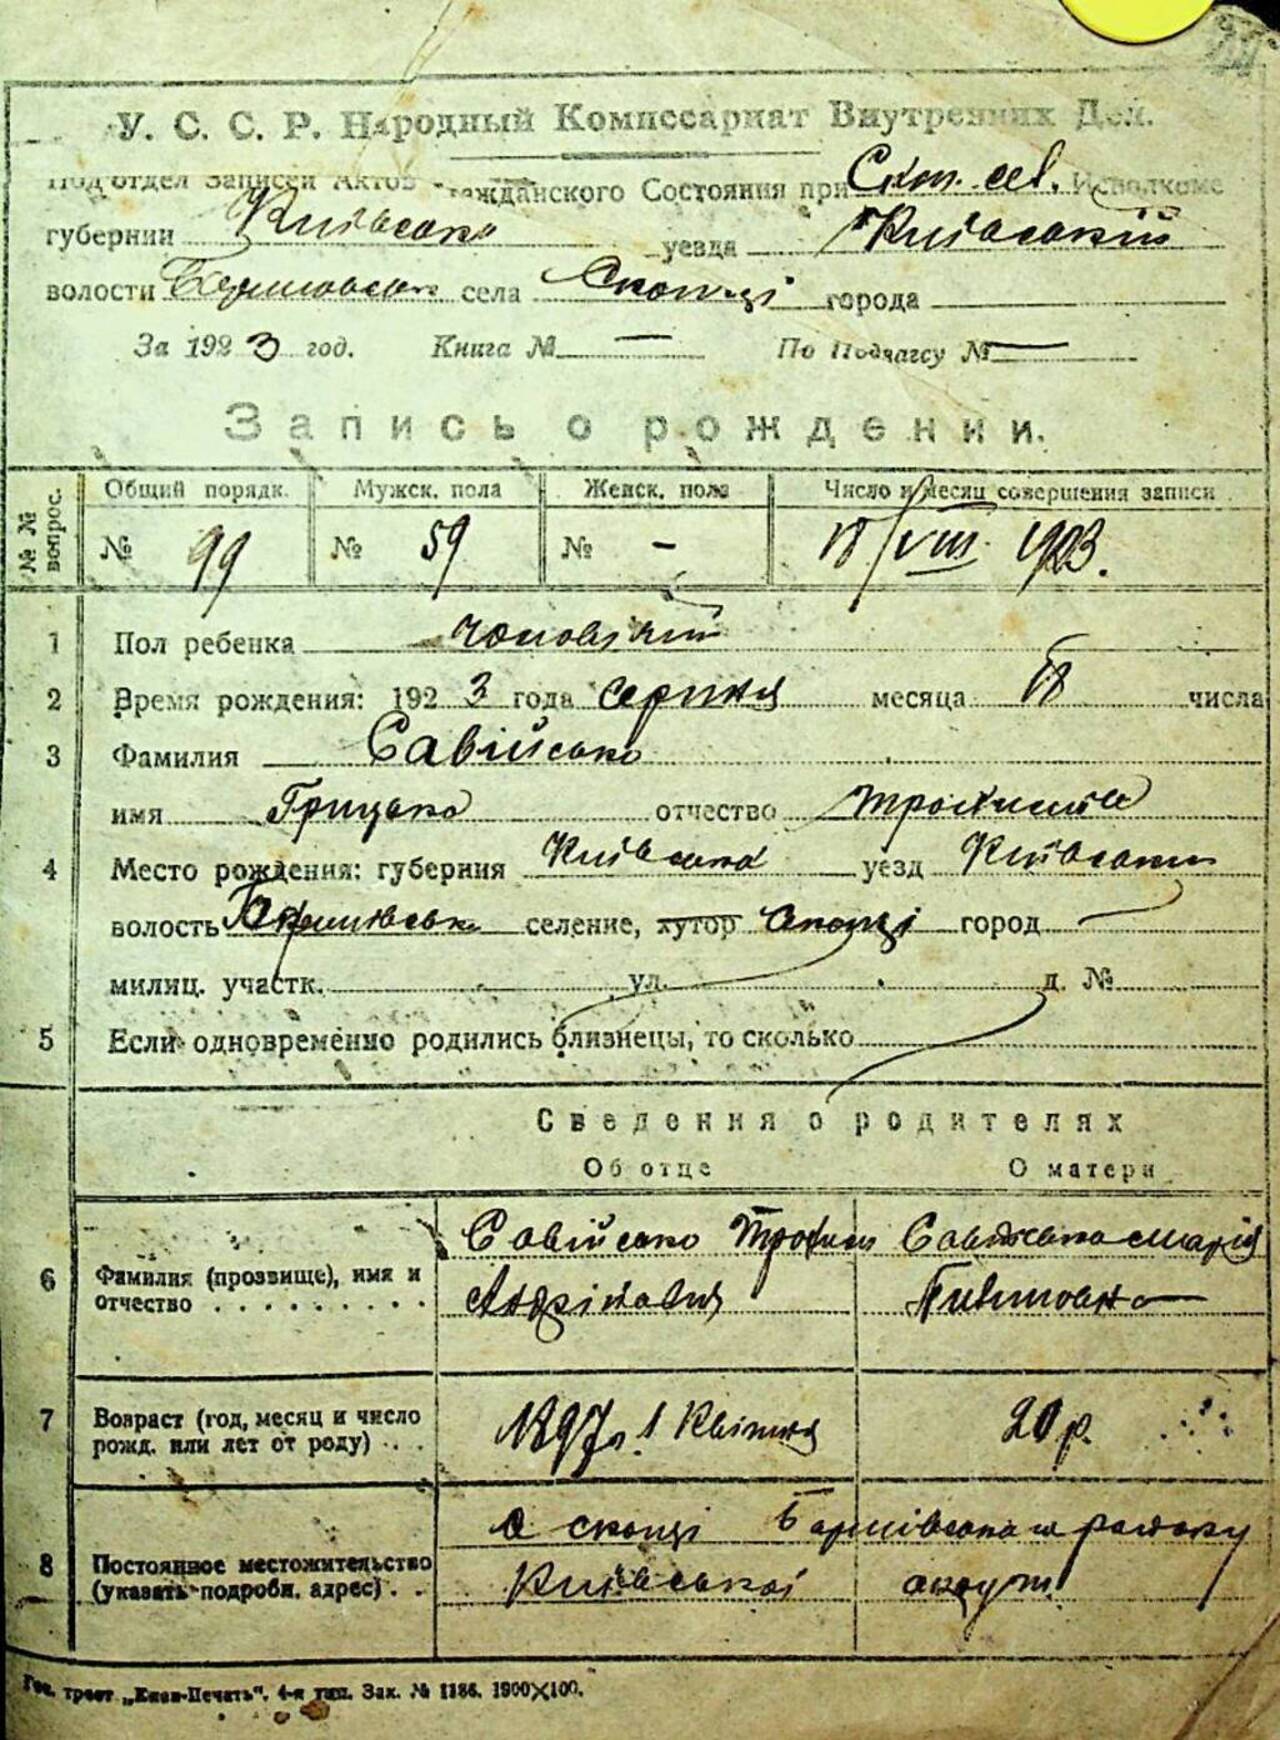 У. С. С. Р. Народный Комиссариат Внутренних Дел.
Подотдел Записей Актов Гражданского Состояния при Скоп. сел. Исполкоме
губернии Київська уезда Київський
волости села Скопці города
За 1923 год. Книга № — По Подзагсу № —
Запись о рождении.
№№ вопрос.
Общий порядк. Мужск. пола Женск. пола Число и месяц совершения записи
№ 99 № 59 № - 18/VIII 1923.
1 Пол ребенка чоловічий
2 Время рождения: 1923 года серпня месяца 18 числа
3 Фамилия Савійсько
имя Грицько отчество
4 Место рождения: губерния Київська уезд Київський
волость селение, хутор Скопці город —
милиц. участк. ул. д. №
5 Если одновременно родились близнецы, то сколько
Сведения о родителях
Об отце О матери
6 Фамилия (прозвище), имя и отчество
Савійсько Трохим
Андрійович
Марія
7 Возраст (год, месяц и число рожд. или лет от роду)
1897 р. 1 Квітня
20 р.
8 Постоянное местожительство (указать подробн. адрес)
с Скопці району
Київської округи
Гос. трест „Киев-Печать“. 4-я тип. Зак. № 1186. 1900×100.